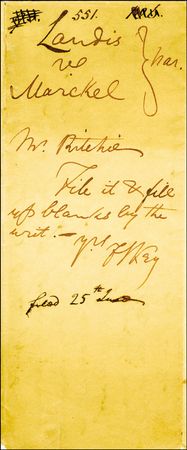 551.
Landis
vs
Marckel
Nar.
Mr. Ritchie
File it & fill
up blanks by the
writ. — yrs
F S Key
filed 25th